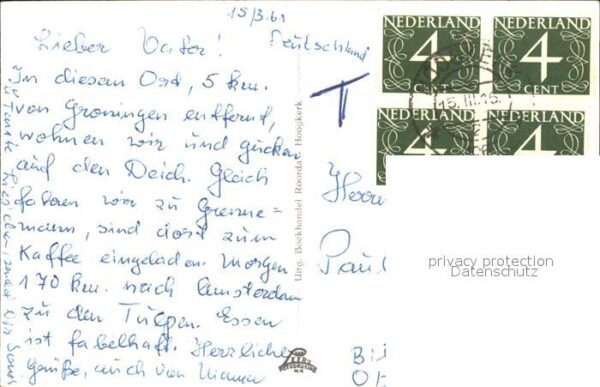 15/3.61
Lieber Vater!
Deutschland
In diesem Ort, 5 km.
von Groningen entfernt,
wohnen wir und gucken
auf den Deich. Gleich
fahren wir zu
mann, sind dort zum
Kaffee eingeladen. Morgen
170 km. nach Amsterdam
zu den Tulpen. Essen
ist fabelhaft. Herzliche
Grüße, auch von Mama
u. Tante
T
Uitg. Boekhandel Roorda Hoogkerk
NEDERLAND
4
CENT
NEDERLAND
4
CENT
NEDERLAND
4
NEDERLAND
4
15.III.
Herrn
Paul
privacy protection
Datenschutz